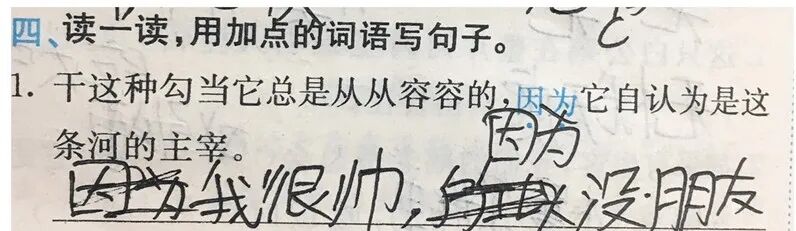 四、读一读,用加点的词语写句子。
1. 干这种勾当它总是从从容容的,因为它自认为是这
条河的主宰。
因为
因为我很帅,所以没朋友